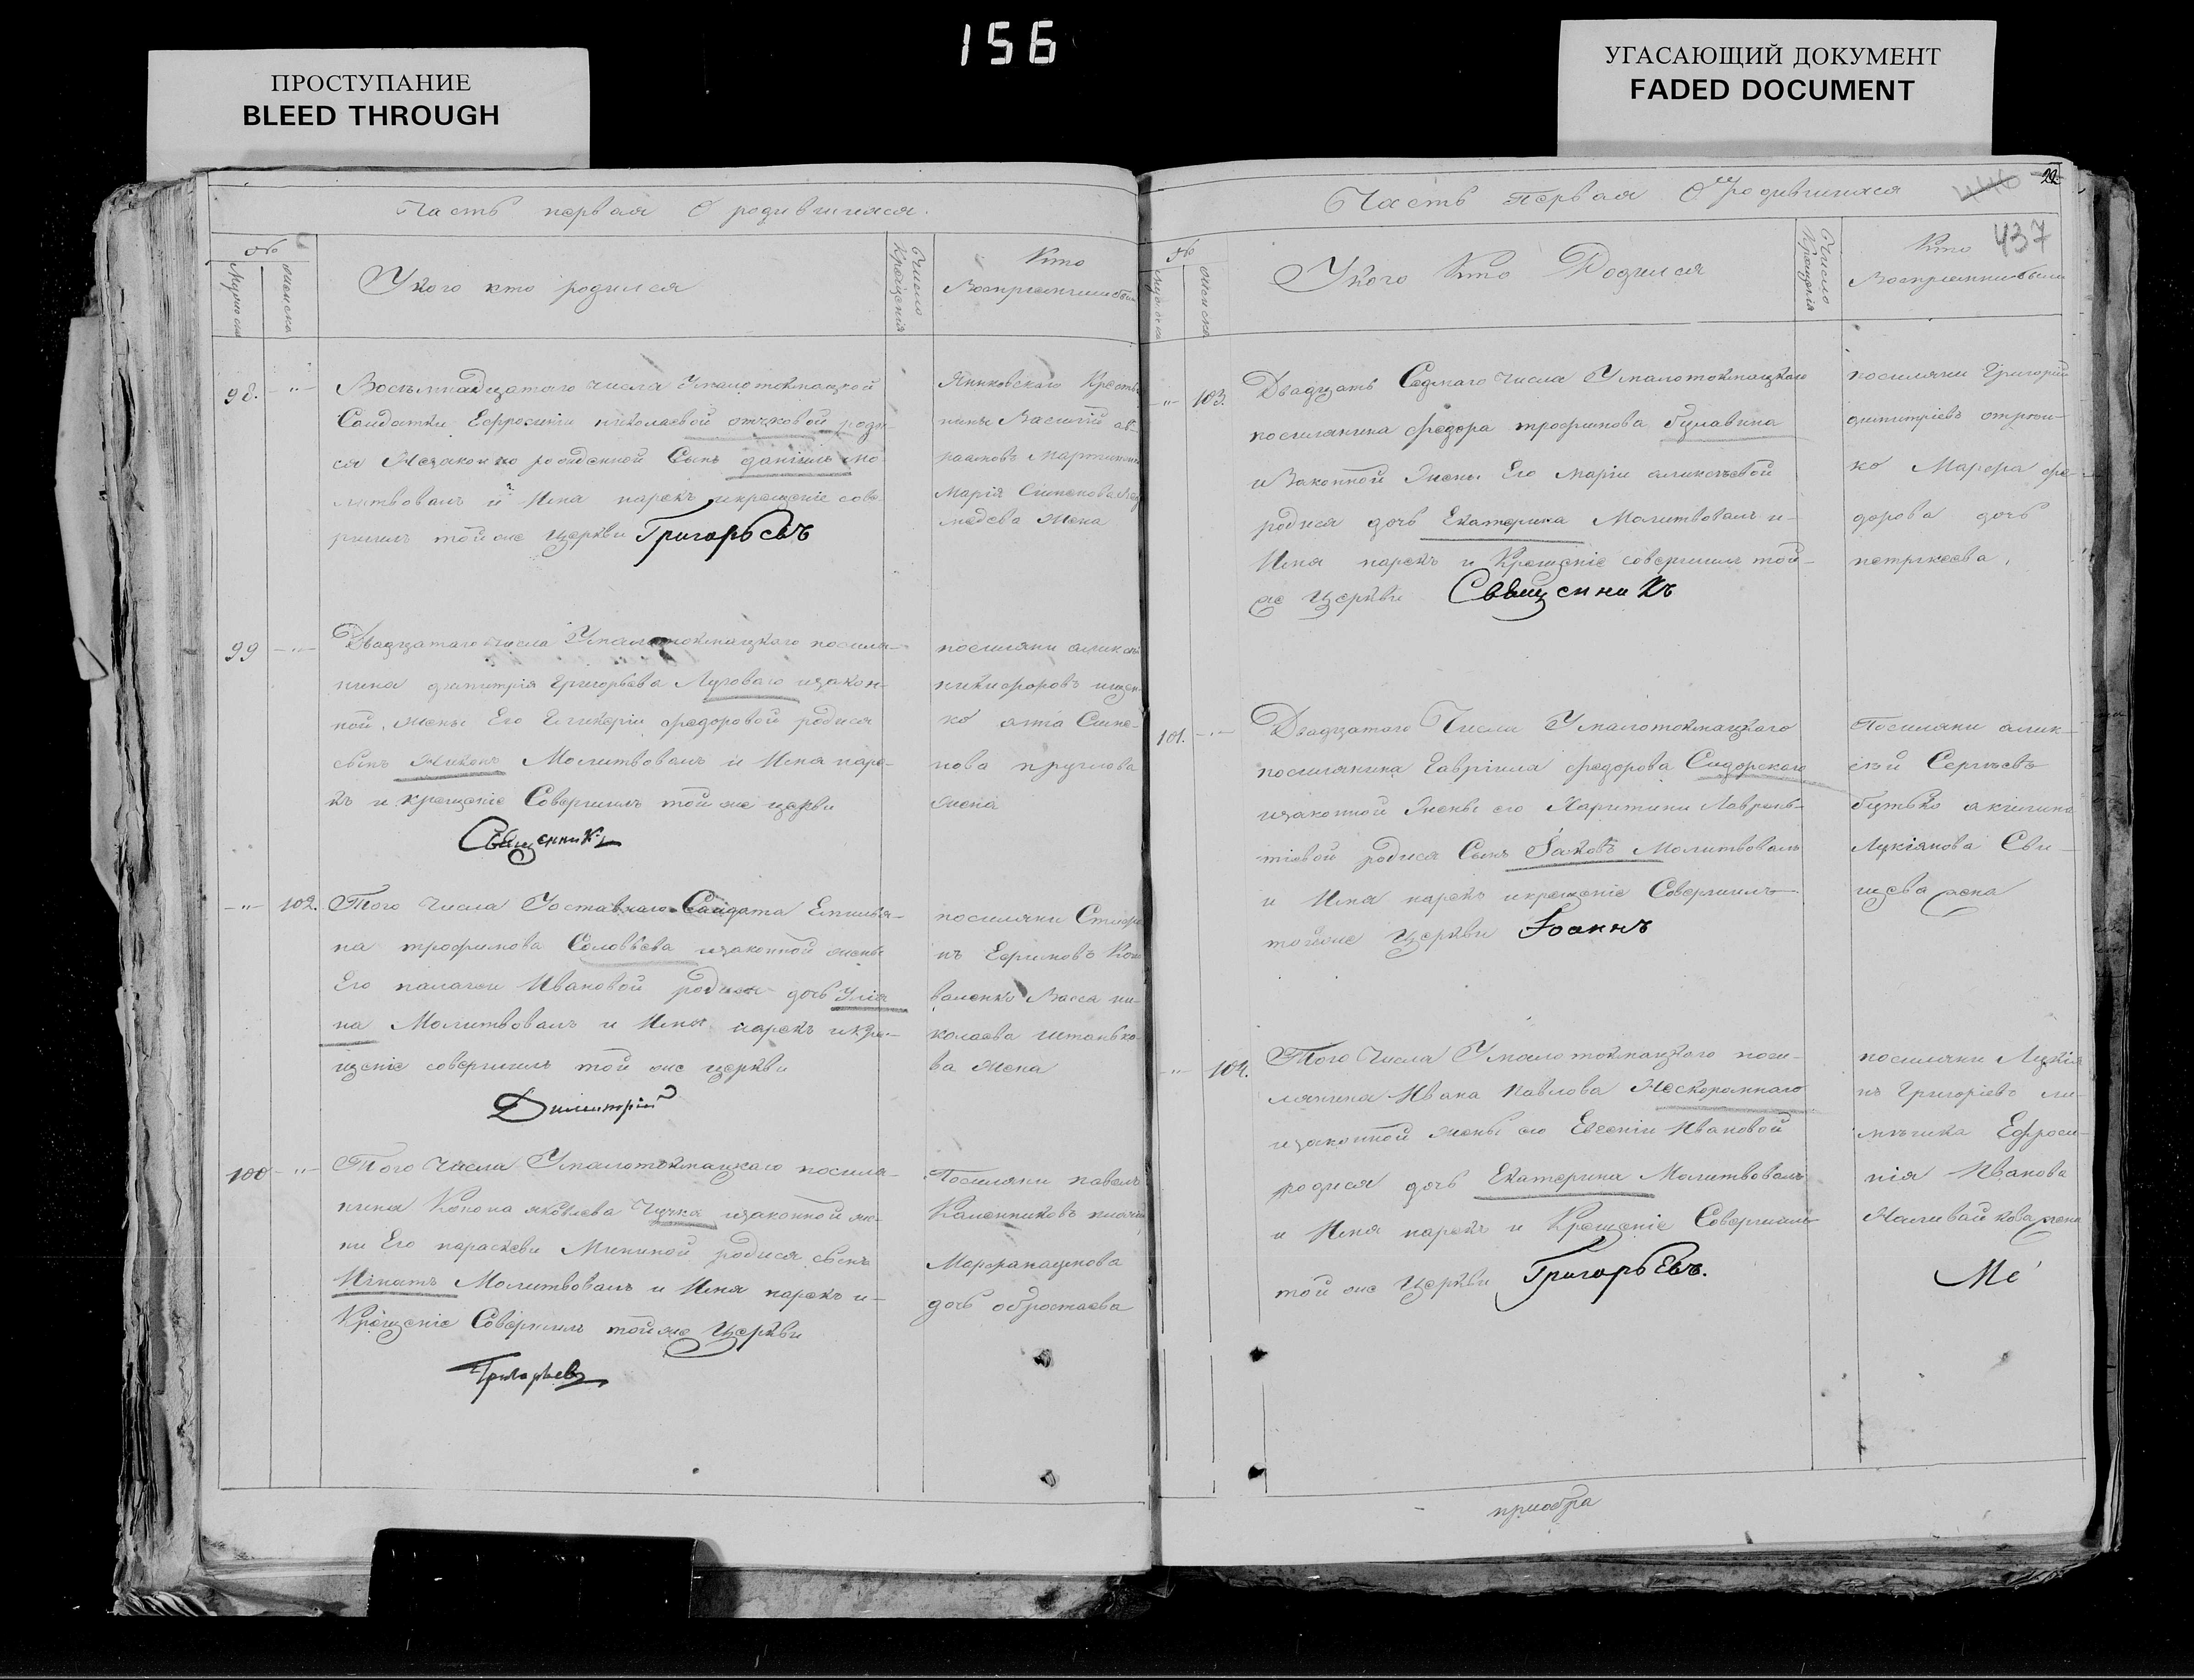 156
ПРОСТУПАНИЕ
BLEED THROUGH
УГАСАЮЩИЙ ДОКУМЕНТ
FADED DOCUMENT
Часть первая О родившихся.
№
Мужеска
женска
У кого кто родился
Число Крещенія
Кто
Воспріемники были
98. -"-
Восемнадцатаго числа У малотокмацкой
Салдатки Ефросиніи николаевой роди-
ся Незаконно рожденной Сынъ даніилъ мо-
литвовалъ и Имя нарекъ икрещеніе сове-
ршилъ той же Церкви Григорьевъ
Яниковскаго Кресть
янинъ Василій ав-
раамовъ
Марія Сименова
жена
99 -"-
Двадцатаго числа У малотокмацкаго посиля-
нина димитрія Григорьева Луговаго изакон-
ной, жены Его Гликеріи федоровой родися
сынъ Никонъ Молитвовалъ и Имя наре-
къ и крещеніе Совершилъ той же церкви
Священникъ
посиляни
никифоровъ ищен-
ко анна Симе-
нова круглова
жена
-"- 102.
Того Числа Уоставнаго Салдата Емилья-
на трофимова Соловьева изаконной жены
Его палагеи Ивановой родися дочь Улія-
на Молитвовалъ и Имя нарекъ икре-
щеніе совершилъ той же церкви
Димитрій
посиляни Стефа
нъ Ефимовъ Ко
валенко Васса ни-
колаева штанько-
ва жена
100 -"-
Того Числа У малотокмацкаго посиля-
нина Конона яковлева Чучка изаконной же-
ни Его параскеви Мининой родися сынъ
Игнатъ Молитвовалъ и Имя нарекъ и-
Крещеніе Совершилъ той же Церкви
Григорьевъ
Посиляни павелъ
дочь
Часть первая О родившихся
446
22
437
№
женска
У кого Кто Родился
Число Крещенія
Кто
Воспріемники были
-"- 103.
Двадцать Седмаго Числа У малотокмацкаго
посилянина федора трофимова Булавина
изаконной Жены Его маріи аликсѣевой
родися дочь Екатерина Молитвовалъ и-
Имя нарекъ и Крещеніе совершилъ той-
же Церкви Священникъ
посиляни Григорій
димитріевъ
ко Марфа фе-
дорова дочь
петриксева.
101. -"-
Двадцатаго Числа У малотокмацкаго
посилянина Гавріила федорова Сидорскаго
изаконной Жены его Харитини Лаврень-
тіевой родися Сынъ Іаковъ Молитвовалъ
и Имя нарекъ икрещеніе Совершилъ
тойже Церкви Іоаннъ
Посиляни алик-
сѣй Сергѣевъ
бутько акилина
Лукіянова Сви-
щева жена
-"- 104.
Того Числа У малотокмацкаго поси-
лянина Ивана Павлова Нескоромнаго
изаконной жены его Евгеніи Ивановой
родися дочь Екатерина Молитвовалъ
и Имя нарекъ и Крещеніе Совершилъ
той же Церкви Григорьевъ.
посиляни Лукія
нъ Григоріевъ ли-
Ефроси-
нія Иванова
Наливайкова жена
Ме
приобра